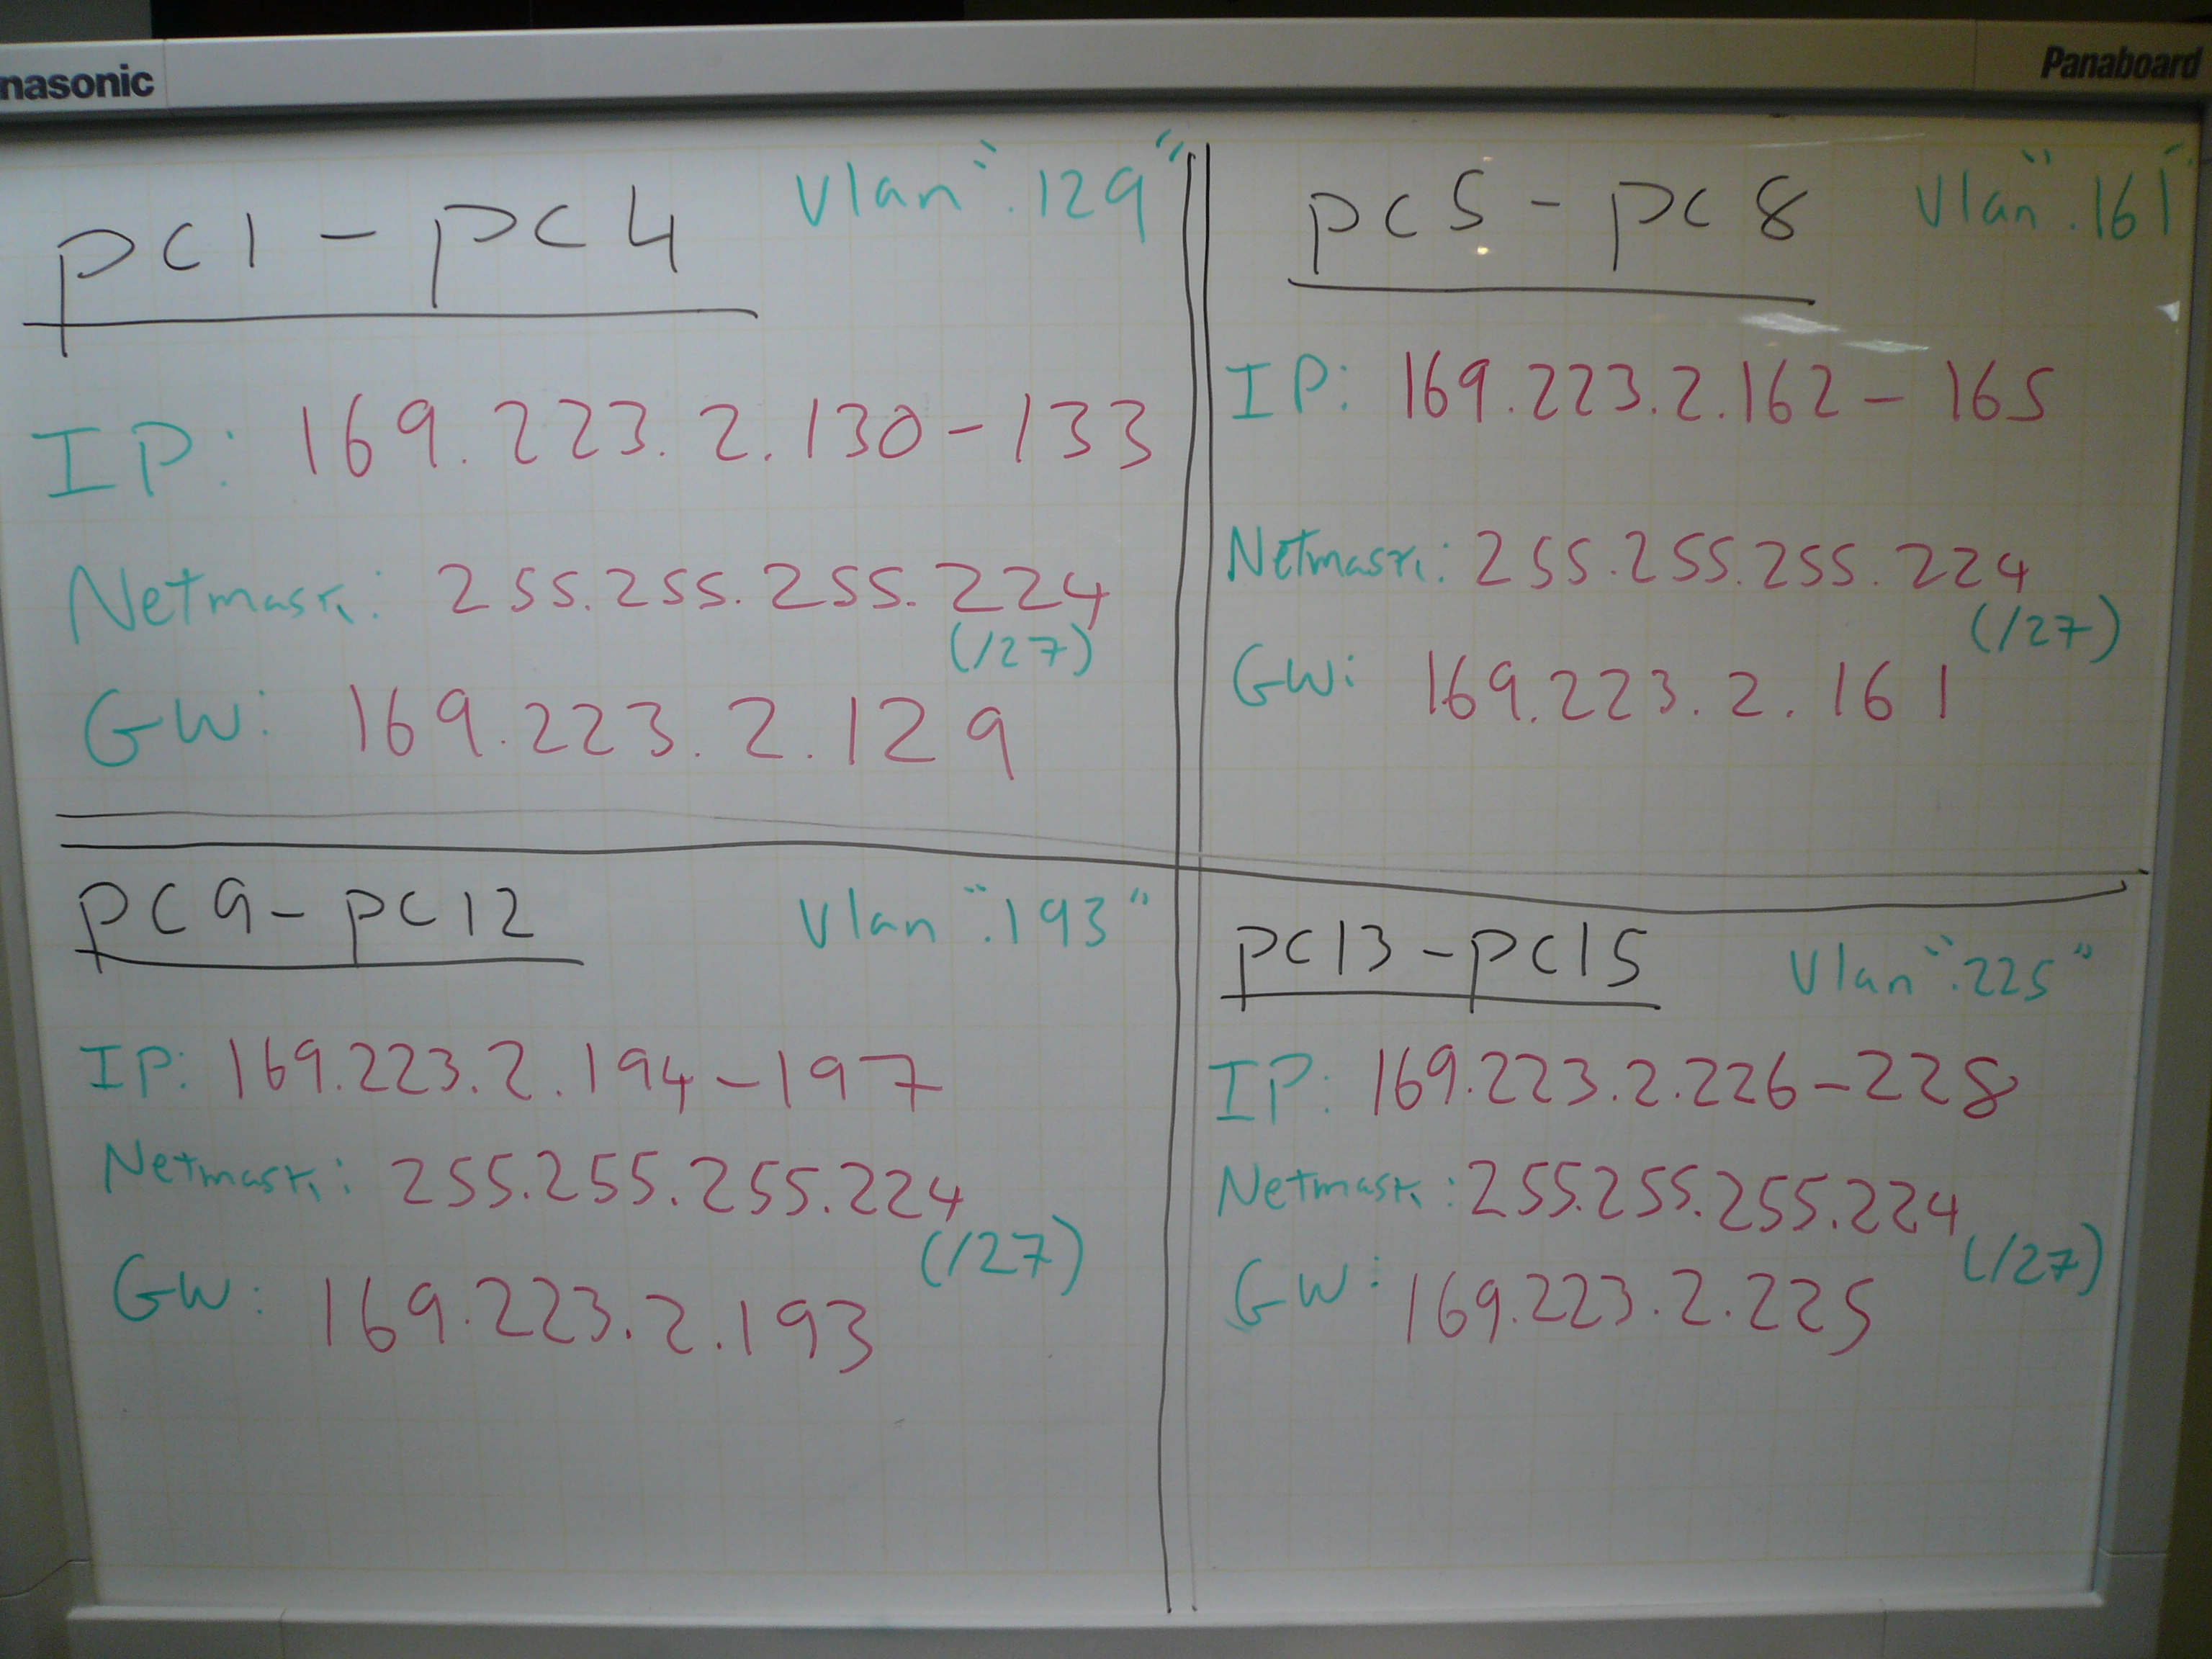 nasonic
Panaboard
pc1 - pc4 Vlan ".129"
IP: 169.223.2.130-133
Netmask: 255.255.255.224
(/27)
GW: 169.223.2.129
pc5 - pc8 Vlan ".161"
IP: 169.223.2.162-165
Netmask: 255.255.255.224
(/27)
GW: 169.223.2.161
pc9 - pc12 Vlan ".193"
IP: 169.223.2.194-197
Netmask: 255.255.255.224
(/27)
GW: 169.223.2.193
pc13 - pc15 Vlan ".225"
IP: 169.223.2.226-228
Netmask: 255.255.255.224
(/27)
GW: 169.223.2.225